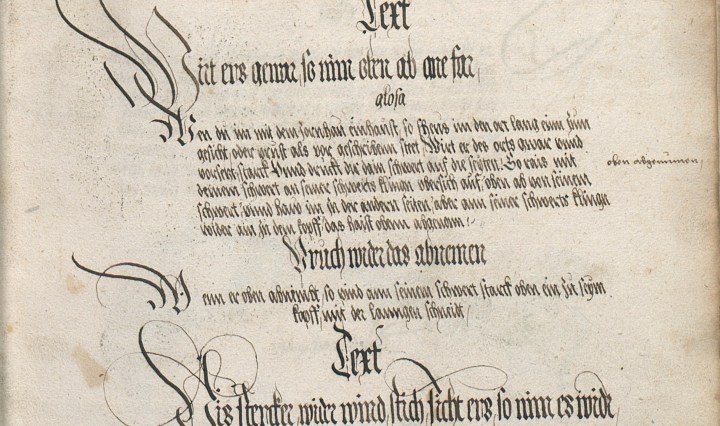 Text
Wirt ers gewar so nim oben ab ane far,
glosa
Wen du im mit dem zornhau einhaust, so scheus im den ort lang einn zum
gesicht oder prust als vor geschriben stet, Wirt er des orts gewar unnd
vorsetzt starck Unnd druckt dir dein schwert auf die seyten, So rais mit
oben abgenummen,
deinem schwert an seiner schwerts klingen ubersich auf, oben ab von seinem
schwert, unnd haw im zu der andern seiten, aber ann seiner schwerts klinge
wider ein zu dem kopff, das haist obenn abgenom,
Bruch wider das abnemen
Wenn er oben abnimbt, so bind ann seinem schwert starck oben ein zu seym
kopff mit der lanngen schneid,
Text
Bis stercker wider wind stich sicht ers, so nim es wider,